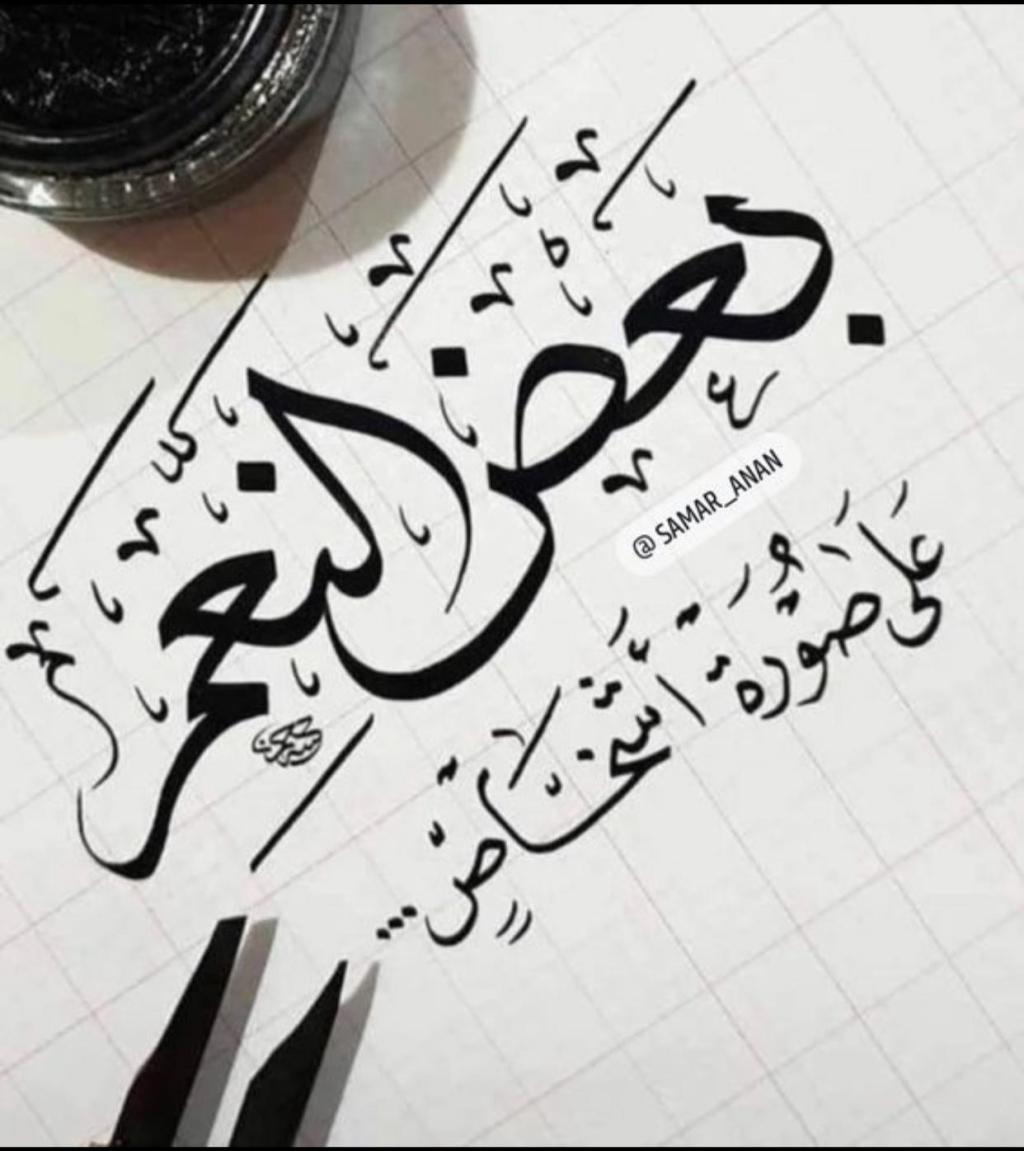 بعض النعم
عَلَى صُورَة أَشْخَاصٍ...
@SAMAR_ANAN